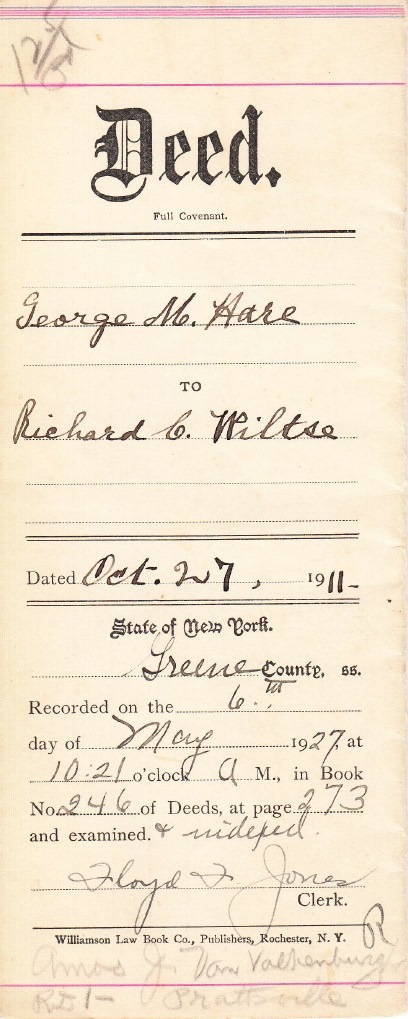 Deed.
Full Covenant.
George M. Hare
TO
Richard C. Wiltse
Dated Oct. 27, 1911-
State of New York.
Greene County, ss.
Recorded on the 6th
day of May 1927, at
10:21 o'clock A M., in Book
No. 246 of Deeds, at page 273
and examined. & indexed.
Floyd F. Jones
Clerk.
Williamson Law Book Co., Publishers, Rochester, N. Y.
R
Amos J. Van Valkenburg
RD 1- Prattsville